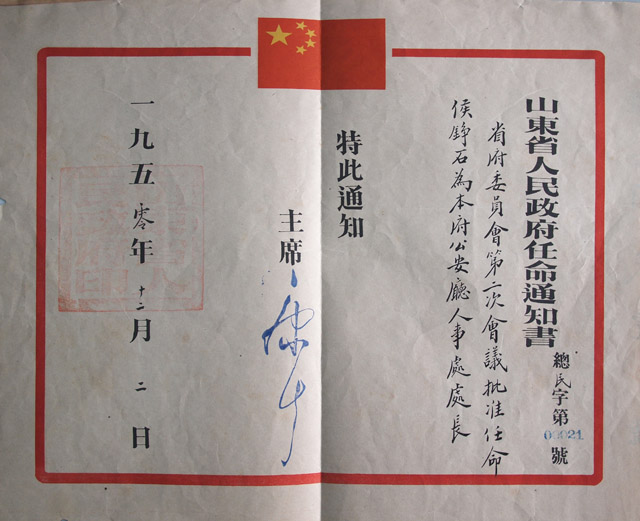 山東省人民政府任命通知書
總民字第00021號
省府委員會第二次會議批准任命
侯錚石為本府公安廳人事處處長
特此通知
主席
一九五零年十二月二日